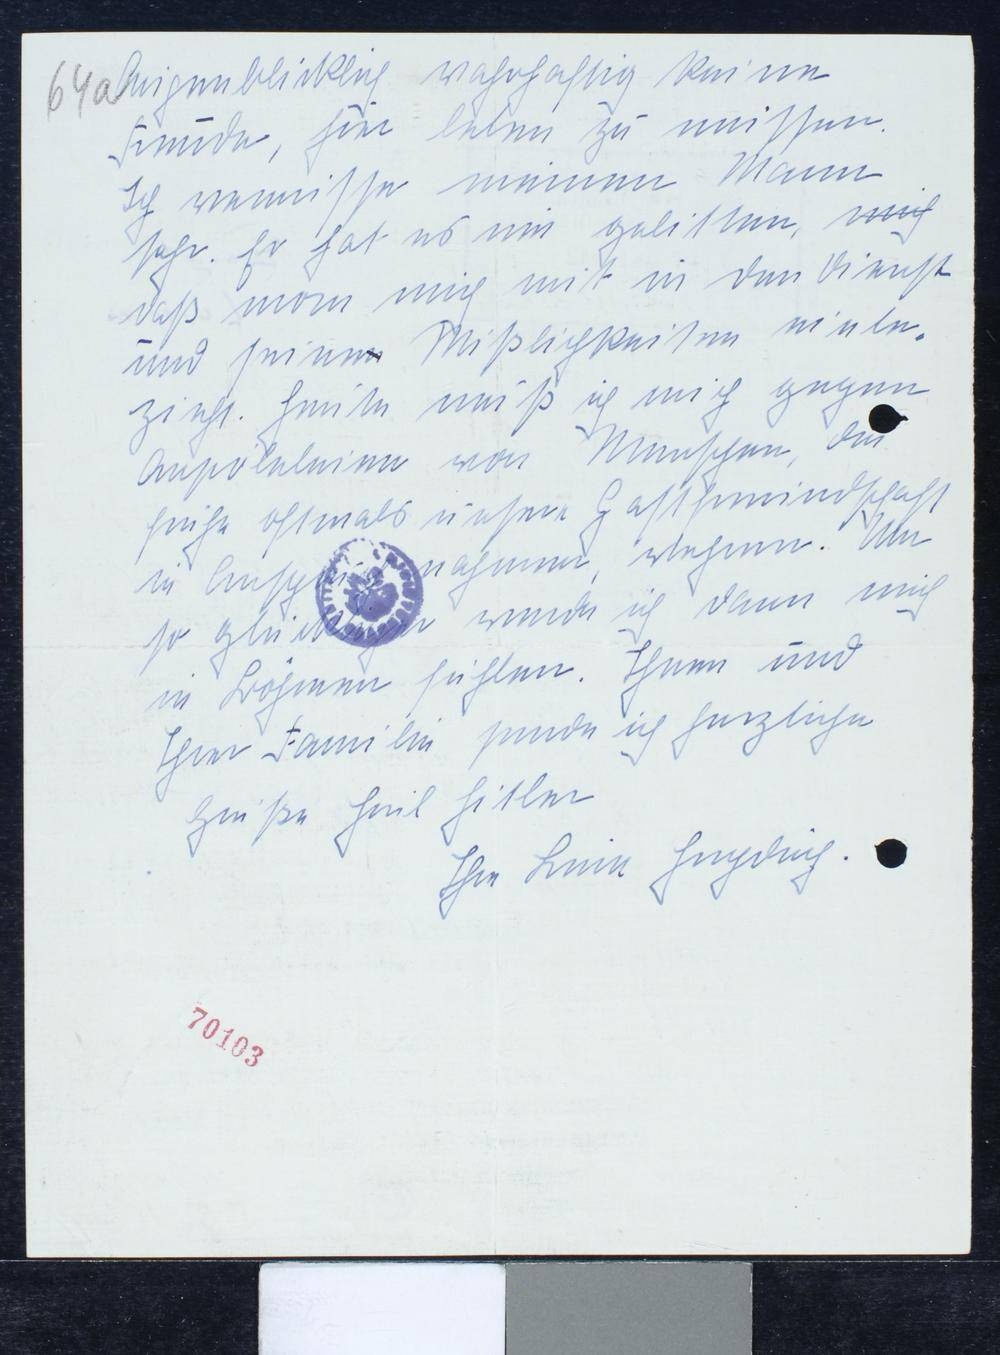 64a
Augenblicklich wahrhaftig keine
Freude, hier leben zu müssen.
Ich vermisse meinen Mann
sehr. Er hat es nie gelitten, mich
daß man mich mit in den Dienst
und seinen Mißlichkeiten einbe-
zieht. Heute muß ich mich gegen
von Menschen, die
früher oftmals unsere Gastfreundschaft
in Anspruch nahmen, wehren. Um
so glücklicher werde ich dann mich
in Böhmen fühlen. Ihnen und
Ihrer Familie sende ich herzliche
Grüße Heil Hitler
Ihre Lina Heydrich.
70103